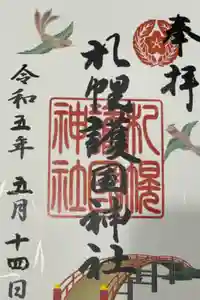 奉拝
札幌護国神社
札幌護国神社
令和五年 五月 十四日